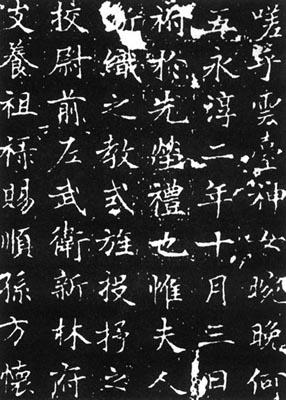 嗟乎雲臺神晼晚
五永淳二年十月三日
祔於先塋禮也惟夫人
斷織之教式旌投杼之
校尉前左武衛新林府
支養祖祿賜順孫方懷